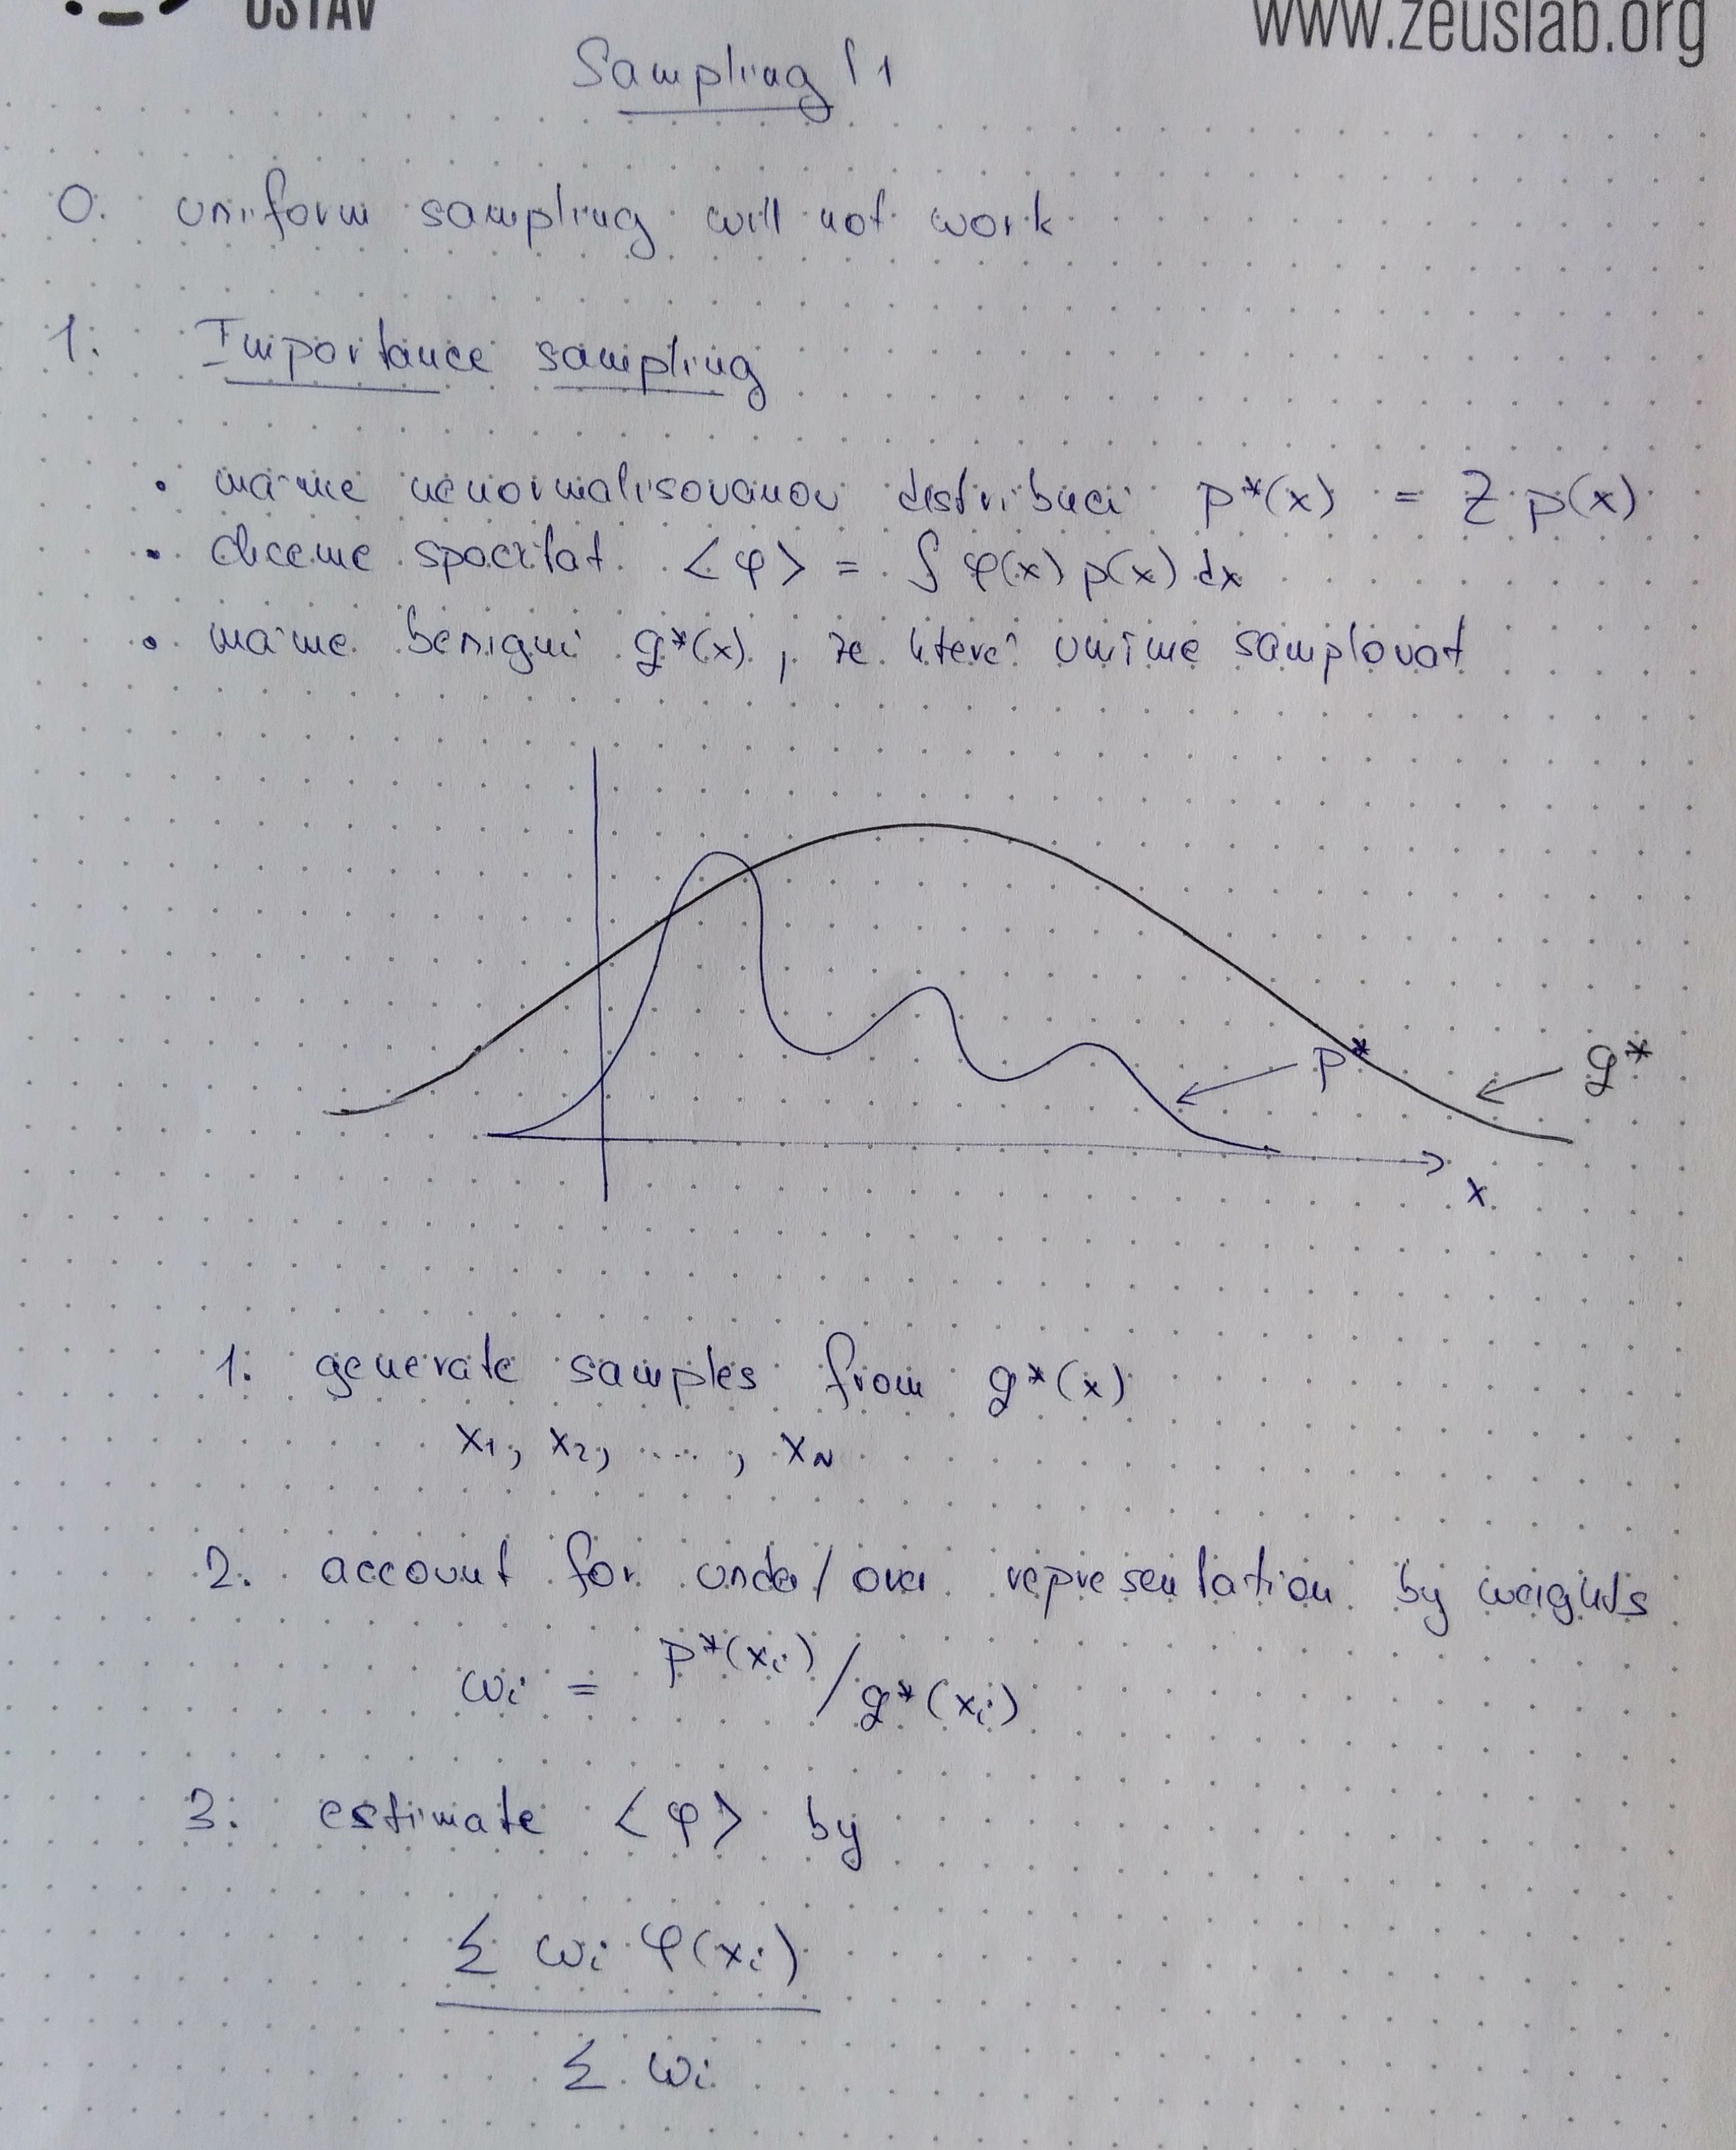 ÚSTAV
www.zeuslab.org
Sampling 1
0. uniform sampling will not work
1. Importance sampling
• máme nenormalisovanou distribuci p*(x) = Z p(x)
• chceme spočítat <φ> = ∫ φ(x) p(x) dx
• máme benigní g*(x), ze které umíme samplovat
p*
g*
x
1. generate samples from g*(x)
x₁, x₂, ...., x_N
2. account for under/over representation by weights
wᵢ = p*(xᵢ)/g*(xᵢ)
3. estimate <φ> by
Σ wᵢ φ(xᵢ)
Σ wᵢ